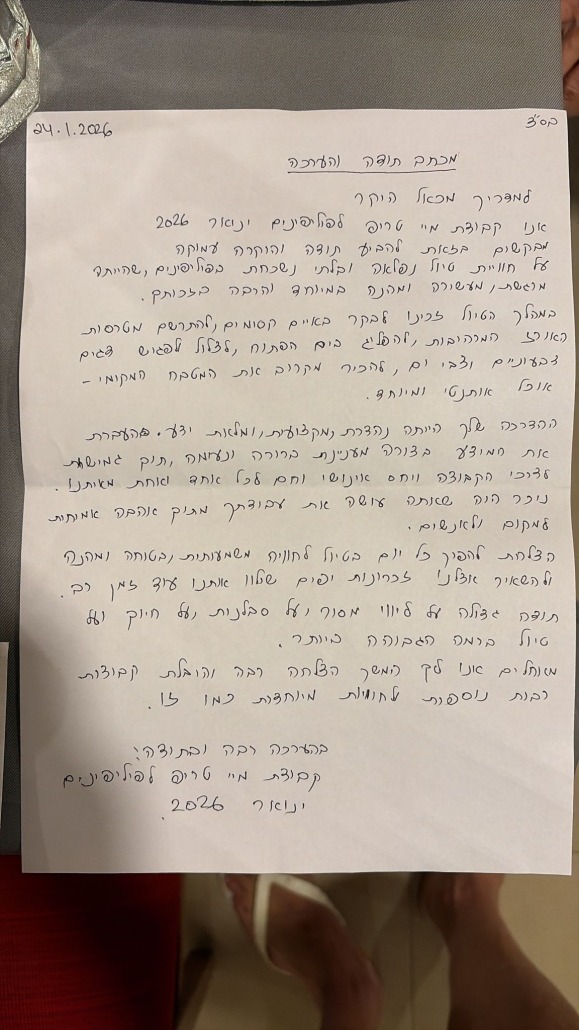 בס"ד
24.1.2026
מכתב תודה והערכה
למדריך מכאל היקר
אנו קבוצת מיי טריפ לפיליפינים ינואר 2026
מבקשים בזאת להביע תודה והוקרה עמוקה
על חוויית טיול נפלאה ובלתי נשכחת בפיליפינים, שהייתה
מרגשת, מעשירה ומהנה במיוחד והרבה בזכותך.
במהלך הטיול זכינו לבקר באיים קסומים, להתרשם מטרסות
האורז המרהיבות, להפליג בים הפתוח, לצלול לפגוש דגים
צבעוניים וצבי ים, להכיר מקרוב את המטבח המקומי -
אוכל אותנטי ומיוחד.
ההדרכה שלך הייתה נהדרת, מקצועית, ומלאת ידע. העברת
את המידע בצורה מעניינת ברורה ונעימה, תוך גמישות
לצרכי הקבוצה ויחס אינושי וחם לכל אחד ואחת מאיתנו.
ניכר היה שאתה עושה את עבודתך מתוך אהבה אמיתית
למקום ולאנשים.
הצלחת להפוך כל יום בטיול לחוויה משמעותית, בטוחה ומהנה
ולהשאיר אצלנו זכרונות יפים שילוו אותנו עוד זמן רב.
תודה גדולה על ליווי מסור, על סבלנות, על חיוך ועל
טיול ברמה הגבוהה ביותר.
מאחלים אנו לך המשך הצלחה רבה והובלת קבוצות
רבות נוספות לחוויות מיוחדות כמו זו.
בהערכה רבה ובתודה:
קבוצת מיי טריפ לפיליפינים
ינואר 2026.